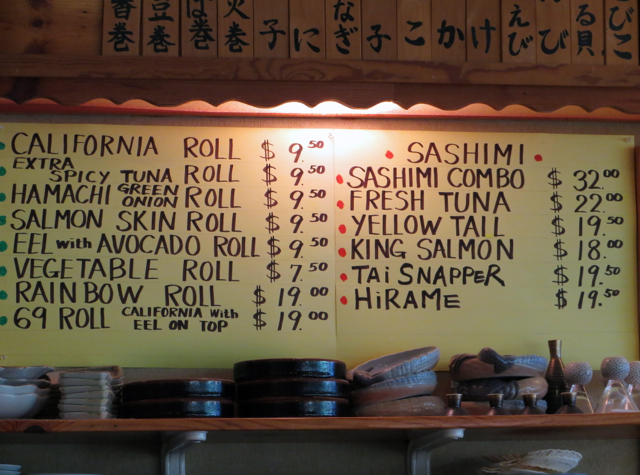 巻
豆巻
ば巻
火巻
子
に
なぎ
子
こ
か
け
えび
び
る貝
びこ
CALIFORNIA ROLL $9.50
EXTRA SPICY TUNA ROLL $9.50
HAMACHI GREEN ONION ROLL $9.50
SALMON SKIN ROLL $9.50
EEL with AVOCADO ROLL $9.50
VEGETABLE ROLL $7.50
RAINBOW ROLL $19.00
69 ROLL CALIFORNIA with EEL ON TOP $19.00
SASHIMI
SASHIMI COMBO $32.00
FRESH TUNA $22.00
YELLOW TAIL $19.50
KING SALMON $18.00
TAi SNAPPER $19.50
HiRAME $19.50